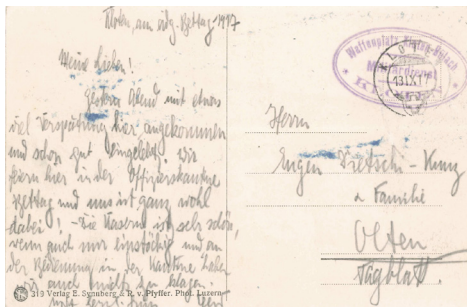 Kloten, am eidg. Bettag 1917
Meine Lieben!
Gestern Abend mit etwas
viel Verspätung hier angekommen
und schon gut eingelebt. Wir
feiern hier in der Offizierskantine
Bettag und uns ist ganz wohl
dabei! - Die Kaserne ist sehr schön,
wenn auch nur einstöckig und an
der Bedienung in der Kantine haben
wir auch nichts zu klagen.
319 Verlag E. Synnberg & R. v. Pfyffer. Phot. Luzern
Waffenplatz Kloten-Bülach
KLOTEN
Herrn
Eugen Dietschi-Kunz
& Familie
Olten
Tagblatt.